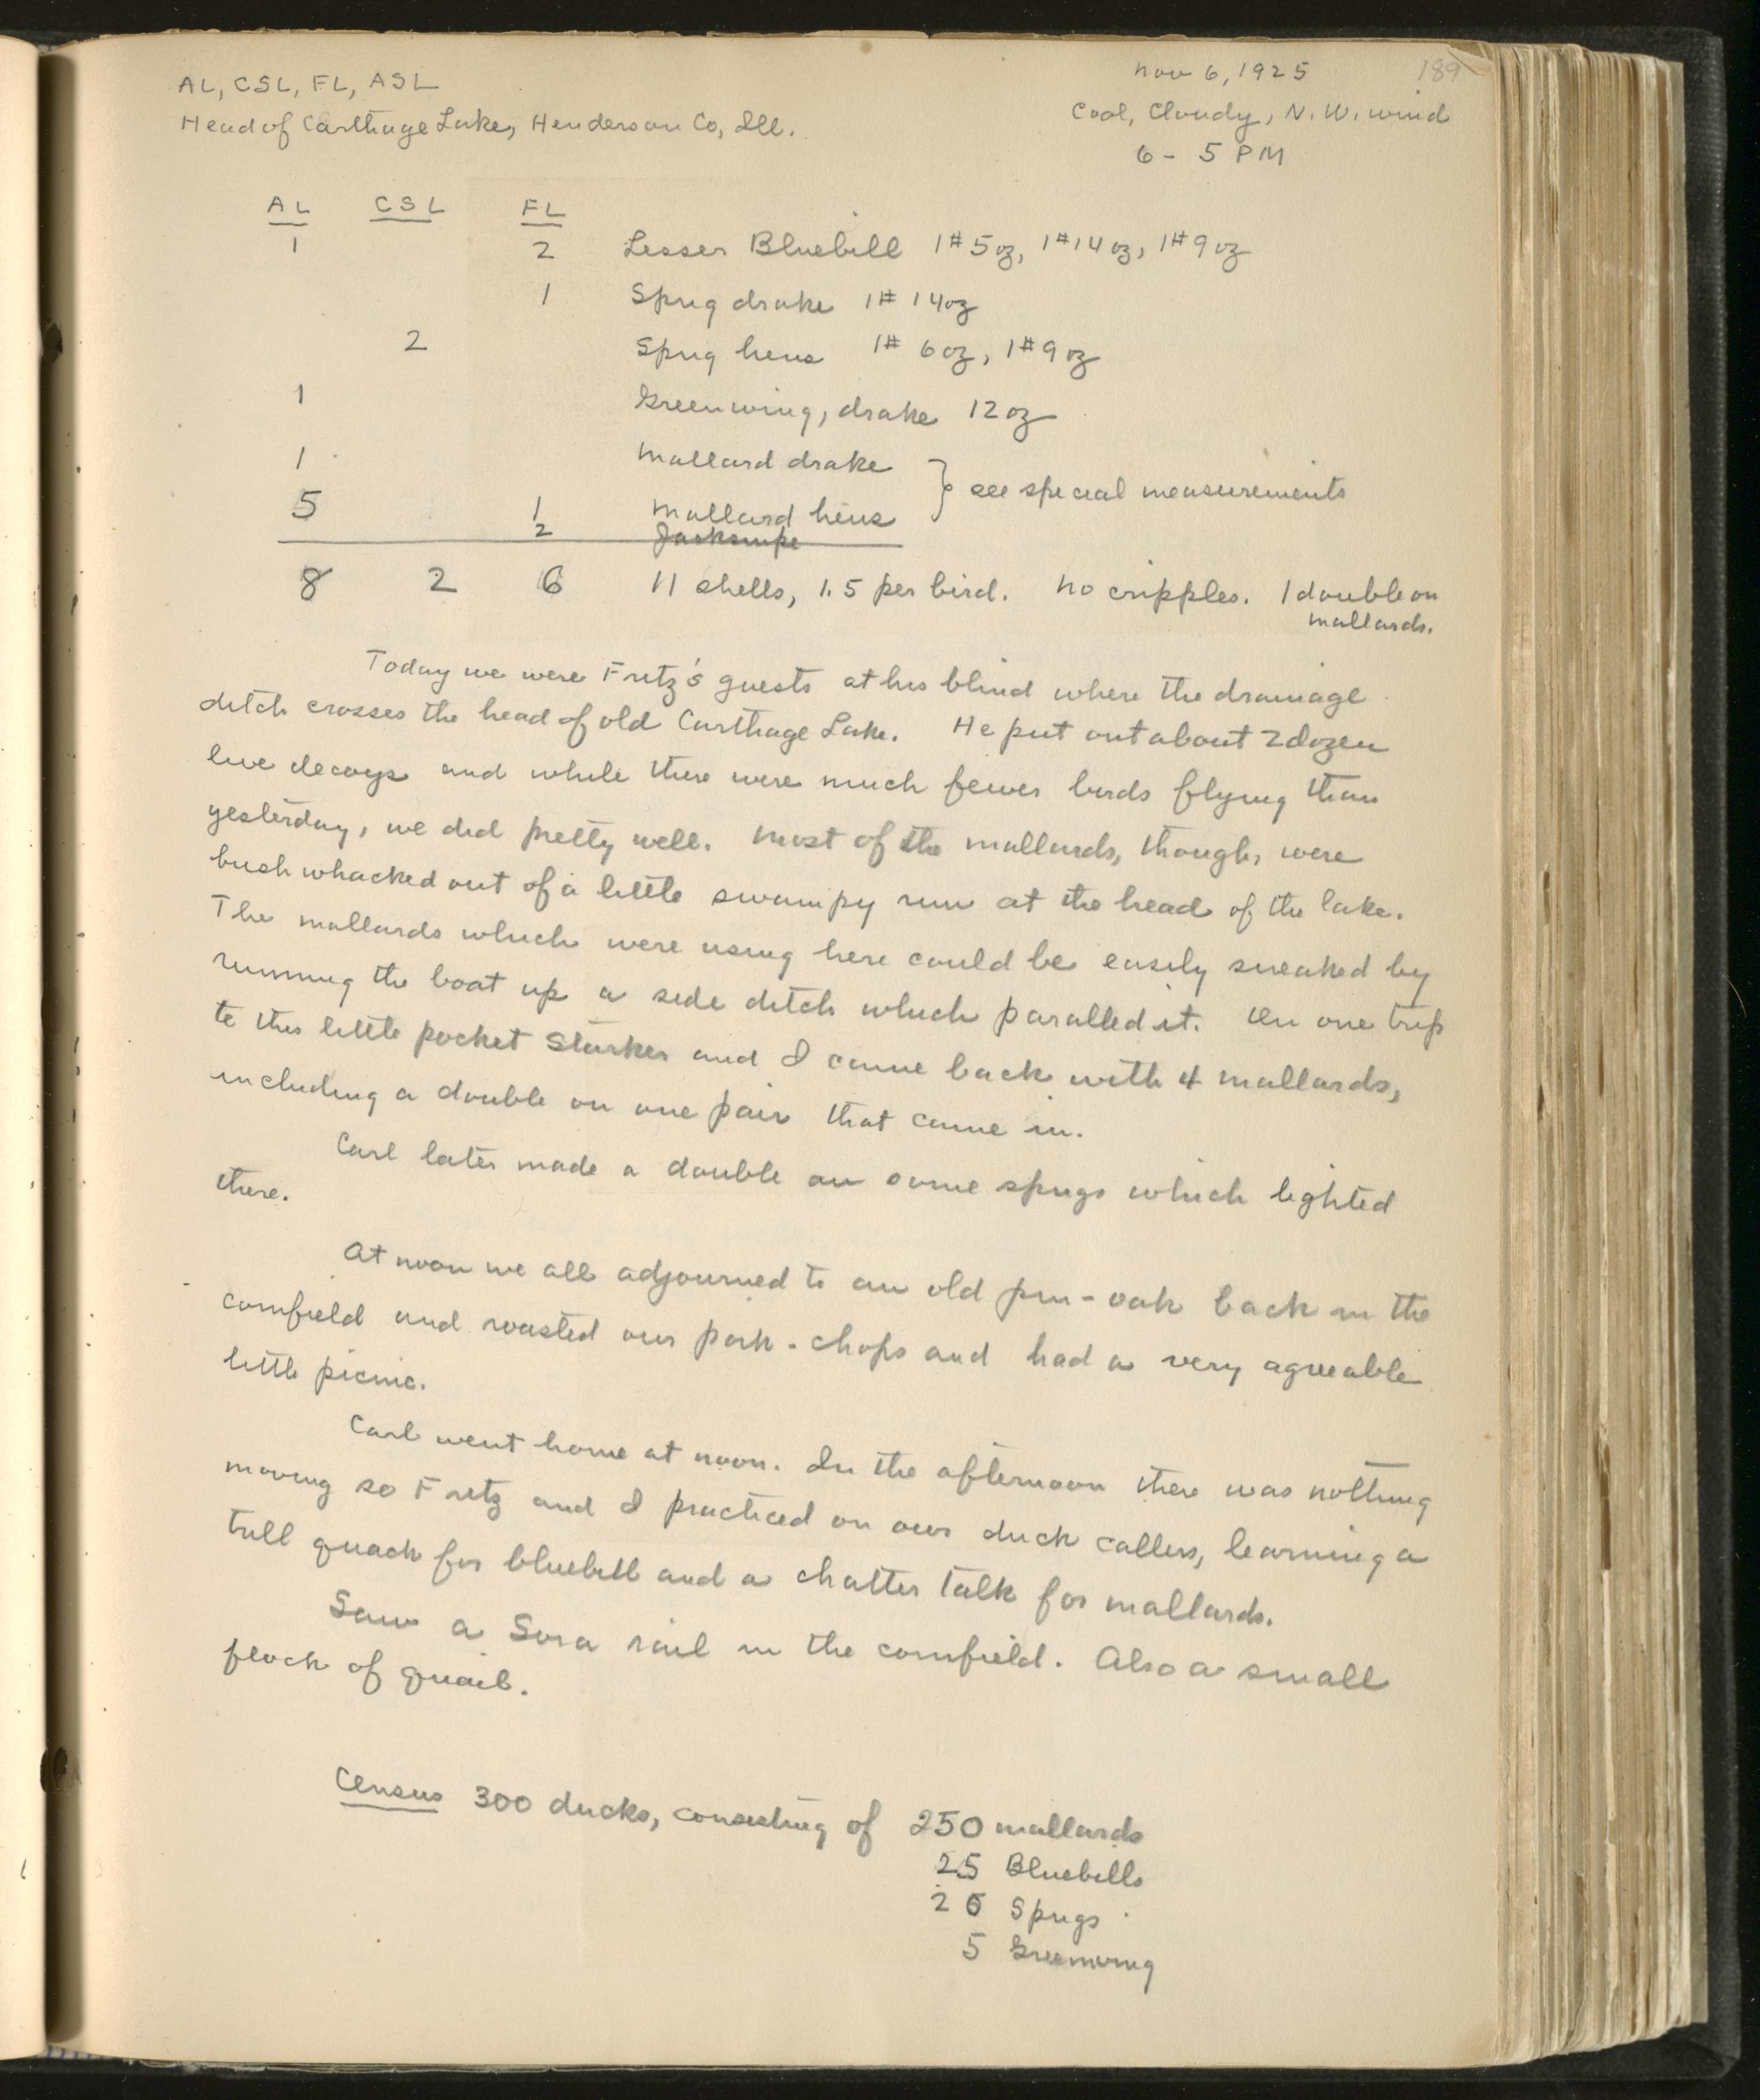 AL, CSL, FL, ASL
Nov 6, 1925
189
Head of Carthage Lake, Henderson Co, Ill.
Cool, Cloudy, N.W. wind
6 - 5 PM
AL CSL FL
1 2 Lesser Bluebill 1# 5 oz, 1# 14 oz, 1# 9 oz
1 Sprig drake 1# 14 oz
2 Sprig hens 1# 6 oz, 1# 9 oz
1 Greenwing, drake 12 oz
1 Mallard drake
5 1 Mallard hens } see special measurements
2 Jacksnipe
8 2 6 11 shells, 1.5 per bird. No cripples. 1 double on
mallards.
Today we were Fritz's guests at his blind where the drainage
ditch crosses the head of old Carthage Lake. He put out about 2 dozen
live decoys and while there were much fewer birds flying than
yesterday, we did pretty well. Most of the mallards, though, were
bushwhacked out of a little swampy run at the head of the lake.
The mallards which were using here could be easily sneaked by
running the boat up a side ditch which paralled it. On one trip
to this little pocket Starker and I came back with 4 mallards,
including a double on one pair that came in.
Carl later made a double on some sprigs which lighted
there.
At noon we all adjourned to an old pin-oak back in the
cornfield and roasted our pork-chops and had a very agreeable
little picnic.
Carl went home at noon. In the afternoon there was nothing
moving so Fritz and I practiced on our duck callers, learning a
trill quack for bluebill and a chatter talk for mallards.
Saw a Sora rail in the cornfield. Also a small
flock of quail.
Census 300 ducks, consisting of 250 mallards
25 Bluebills
20 Sprigs
5 Greenwing